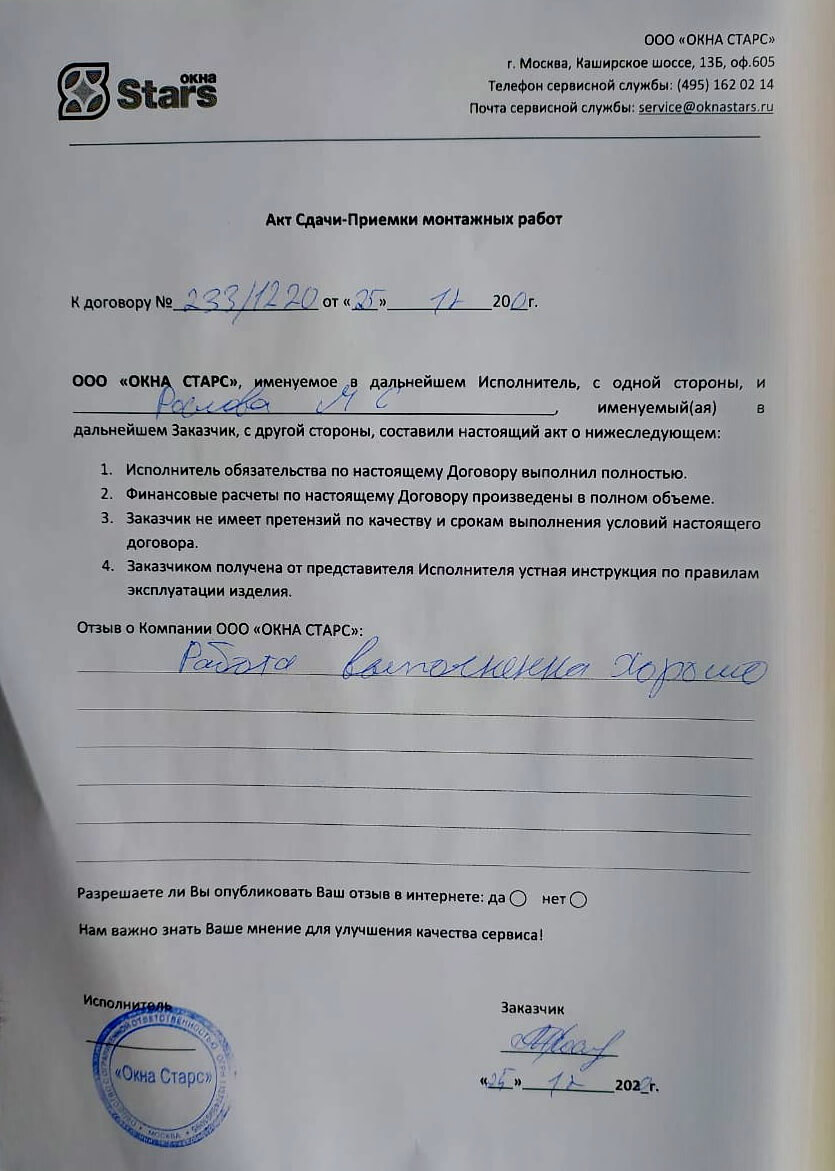 ОКНА
Stars
ООО «ОКНА СТАРС»
г. Москва, Каширское шоссе, 13Б, оф.605
Телефон сервисной службы: (495) 162 02 14
Почта сервисной службы: service@oknastars.ru
Акт Сдачи-Приемки монтажных работ
К договору № 233/1220 от «25» 12 200г.
ООО «ОКНА СТАРС», именуемое в дальнейшем Исполнитель, с одной стороны, и
Рослова М С, именуемый(ая) в
дальнейшем Заказчик, с другой стороны, составили настоящий акт о нижеследующем:
1. Исполнитель обязательства по настоящему Договору выполнил полностью.
2. Финансовые расчеты по настоящему Договору произведены в полном объеме.
3. Заказчик не имеет претензий по качеству и срокам выполнения условий настоящего
договора.
4. Заказчиком получена от представителя Исполнителя устная инструкция по правилам
эксплуатации изделия.
Отзыв о Компании ООО «ОКНА СТАРС»:
Работа выполненна хорошо
Разрешаете ли Вы опубликовать Ваш отзыв в интернете: да нет
Нам важно знать Ваше мнение для улучшения качества сервиса!
Исполнитель
Заказчик
«Окна Старс»
МОСКВА
«25» 12 2020г.